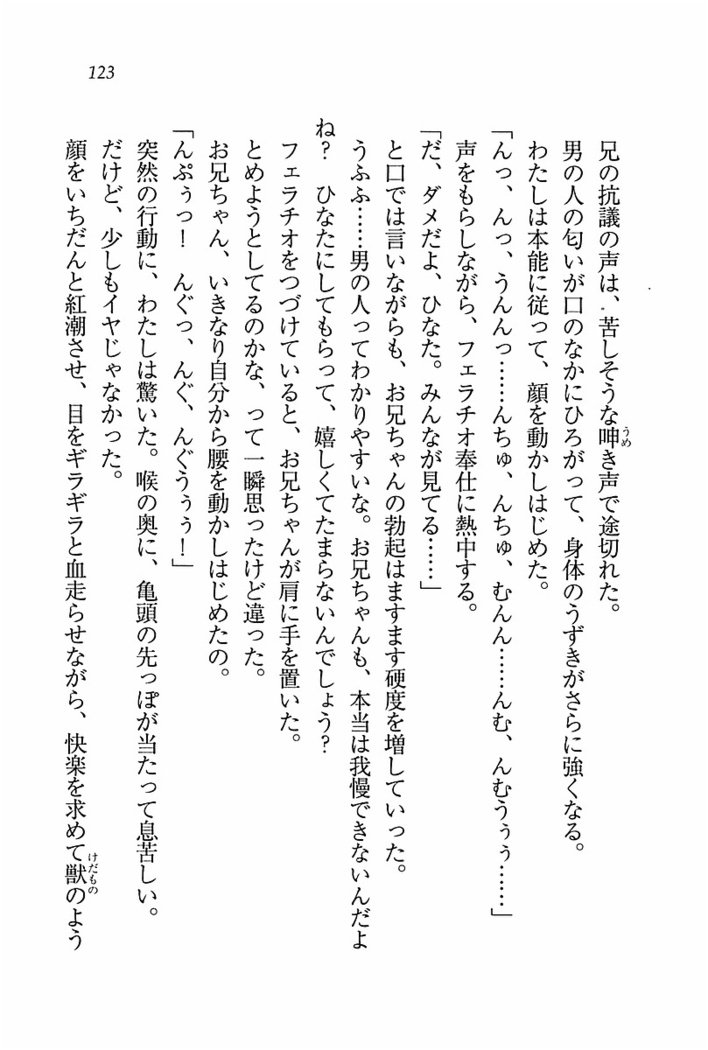 123
兄の抗議の声は、苦しそうな呻き声で途切れた。
男の人の匂いが口のなかにひろがって、身体のうずきがさらに強くなる。
わたしは本能に従って、顔を動かしはじめた。
「んっ、んっ、うんんっ……んちゅ、んちゅ、むんん……んむ、んむうぅぅ……」
声をもらしながら、フェラチオ奉仕に熱中する。
「だ、ダメだよ、ひなた。みんなが見てる……」
と口では言いながらも、お兄ちゃんの勃起はますます硬度を増していった。
うふふ……男の人ってわかりやすいな。お兄ちゃんも、本当は我慢できないんだよ
ね？　ひなたにしてもらって、嬉しくてたまらないんでしょう？
フェラチオをつづけていると、お兄ちゃんが肩に手を置いた。
とめようとしてるのかな、って一瞬思ったけど違った。
お兄ちゃん、いきなり自分から腰を動かしはじめたの。
「んぷぅっ！　んぐっ、んぐ、んぐうぅぅ！」
突然の行動に、わたしは驚いた。喉の奥に、亀頭の先っぽが当たって息苦しい。
だけど、少しもイヤじゃなかった。
顔をいちだんと紅潮させ、目をギラギラと血走らせながら、快楽を求めて獣のよう